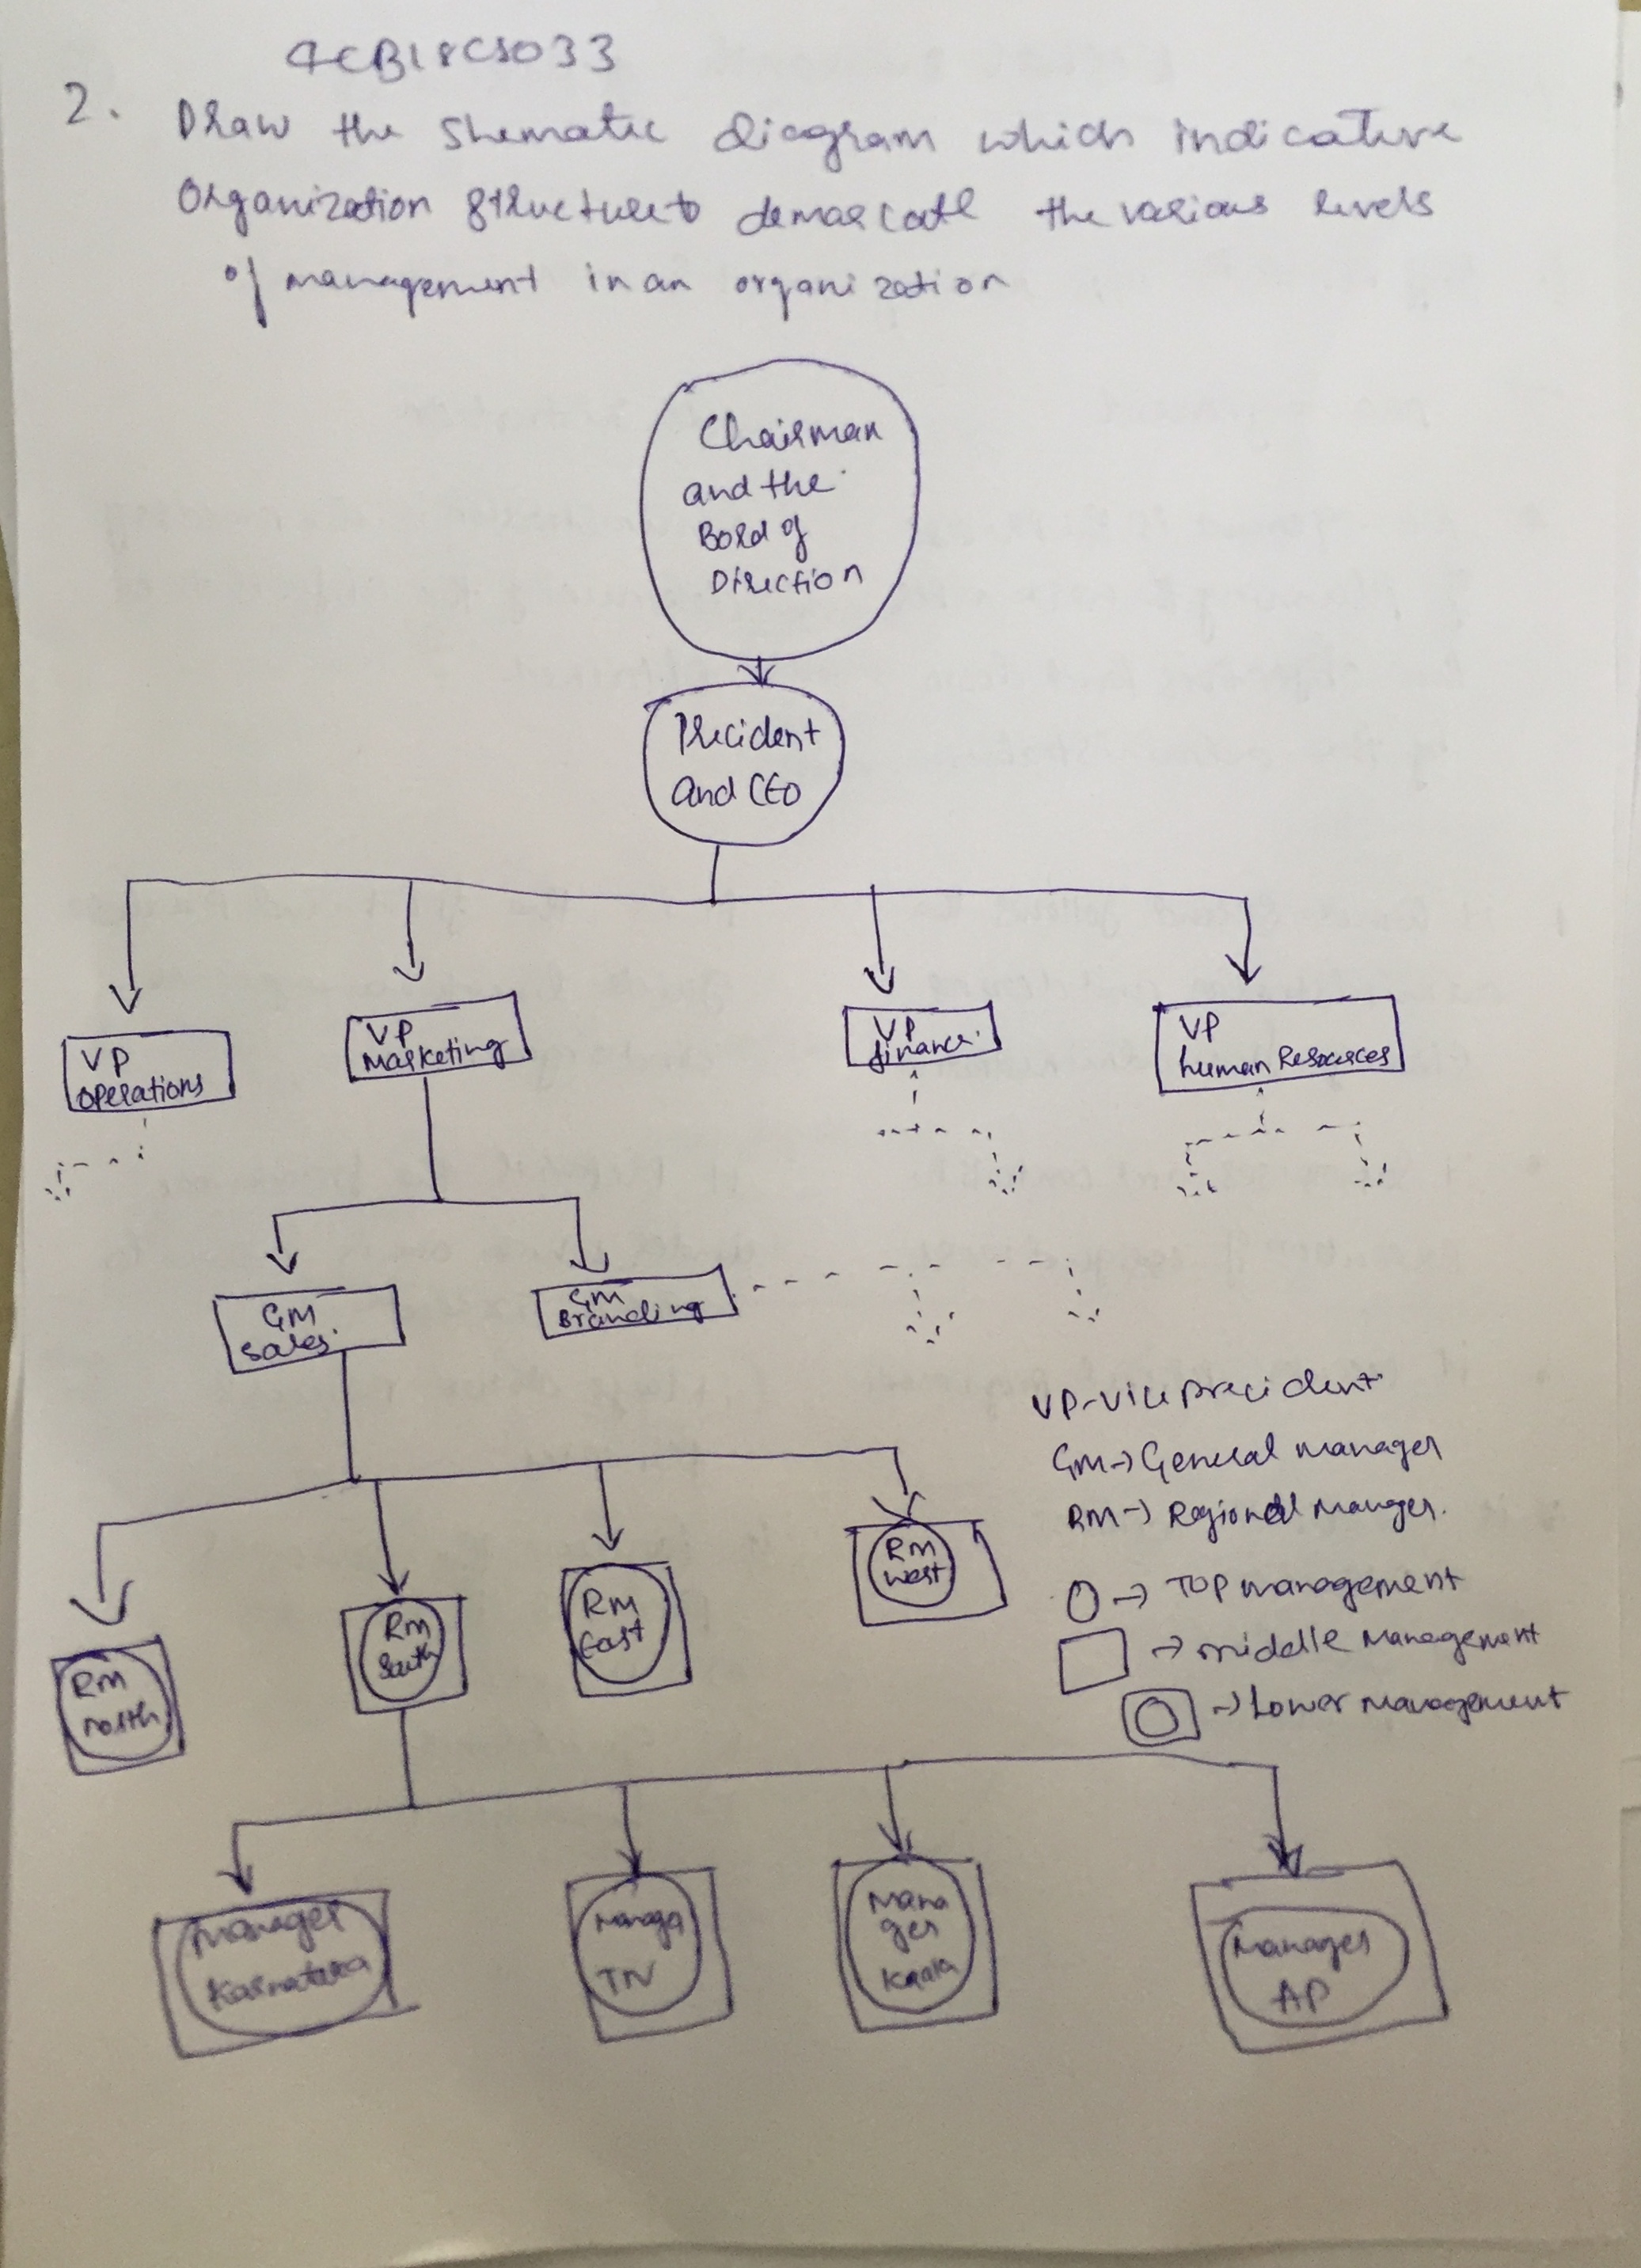 4CB18CS033
2. Draw the Shematic diagram which indicative
Organization structure to demarcate the various levels
of management in an organization
Chairman
and the
Bord of
Direction
Precident
and CEO
VP
operations
VP
Marketing
VP
finance.
VP
human Resources
GM
Sales.
GM
Branding
VP-Vice precident
GM→General manager
RM→Regional Manager.
→ TOP management
→ middle Management
→ Lower Management
RM
north
RM
South
RM
East
RM
west
Manager
Karnataka
Manager
TN
Mana
ger
Kerala
Manager
AP